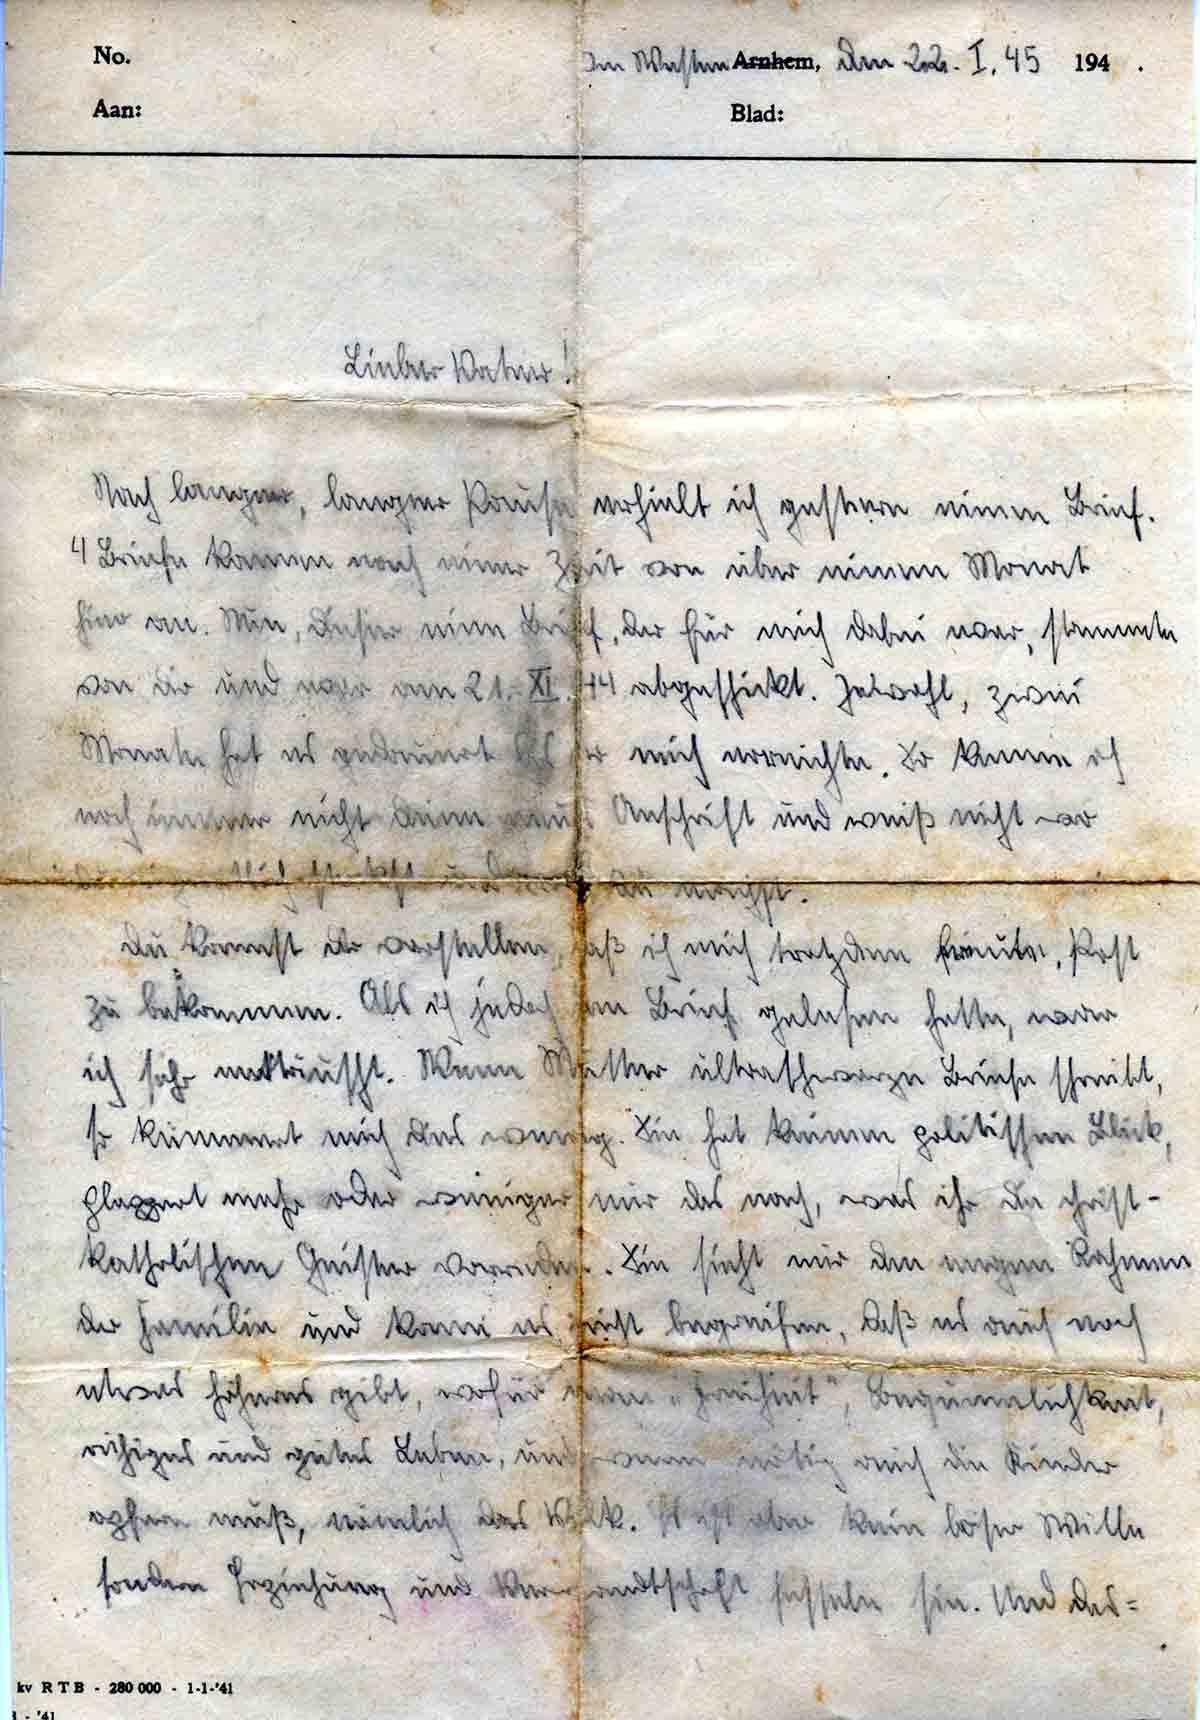 No.
Im Westen Arnhem, den 22. I. 45 194 .
Aan:
Blad:
Lieber Vater!
Nach langer, langer Pause erhielt ich gestern einen Brief.
4 Briefe kamen nach einer Zeit von über einem Monat
hier an. Nun, dieser eine Brief, der für mich dabei war, stammte
von dir und war am 21. XI. 44 abgeschickt. Jawohl, zwei
Monate hat es gedauert bis er mich erreichte. So kenne ich
noch immer nicht deine neue Anschrift und weiß nicht wo
du eigentlich steckst und was du machst.
Du kannst dir vorstellen, daß ich mich trotzdem freute, Post
zu bekommen. Als ich jedoch den Brief gelesen hatte, war
ich sehr enttäuscht. Wenn Mutter ultraschwarze Briefe schreibt,
so kümmert mich das wenig. Sie hat keinen politischen Blick,
plappert mehr oder weniger nur das nach, was ihr die christ-
katholischen Geister vorreden. Sie sieht nur den engen Rahmen
der Familie und kann es nicht begreifen, daß es auch noch
etwas höheres gibt, wofür man „Freiheit“, Bequemlichkeit,
ruhiges und gutes Leben, und wenn nötig auch die Kinder
opfern muß, nämlich das Volk. Es ist aber kein böser Wille
sondern Erziehung und Verwandtschaft fesseln sie. Und das=
kv R T B - 280 000 - 1-1-'41
- '41